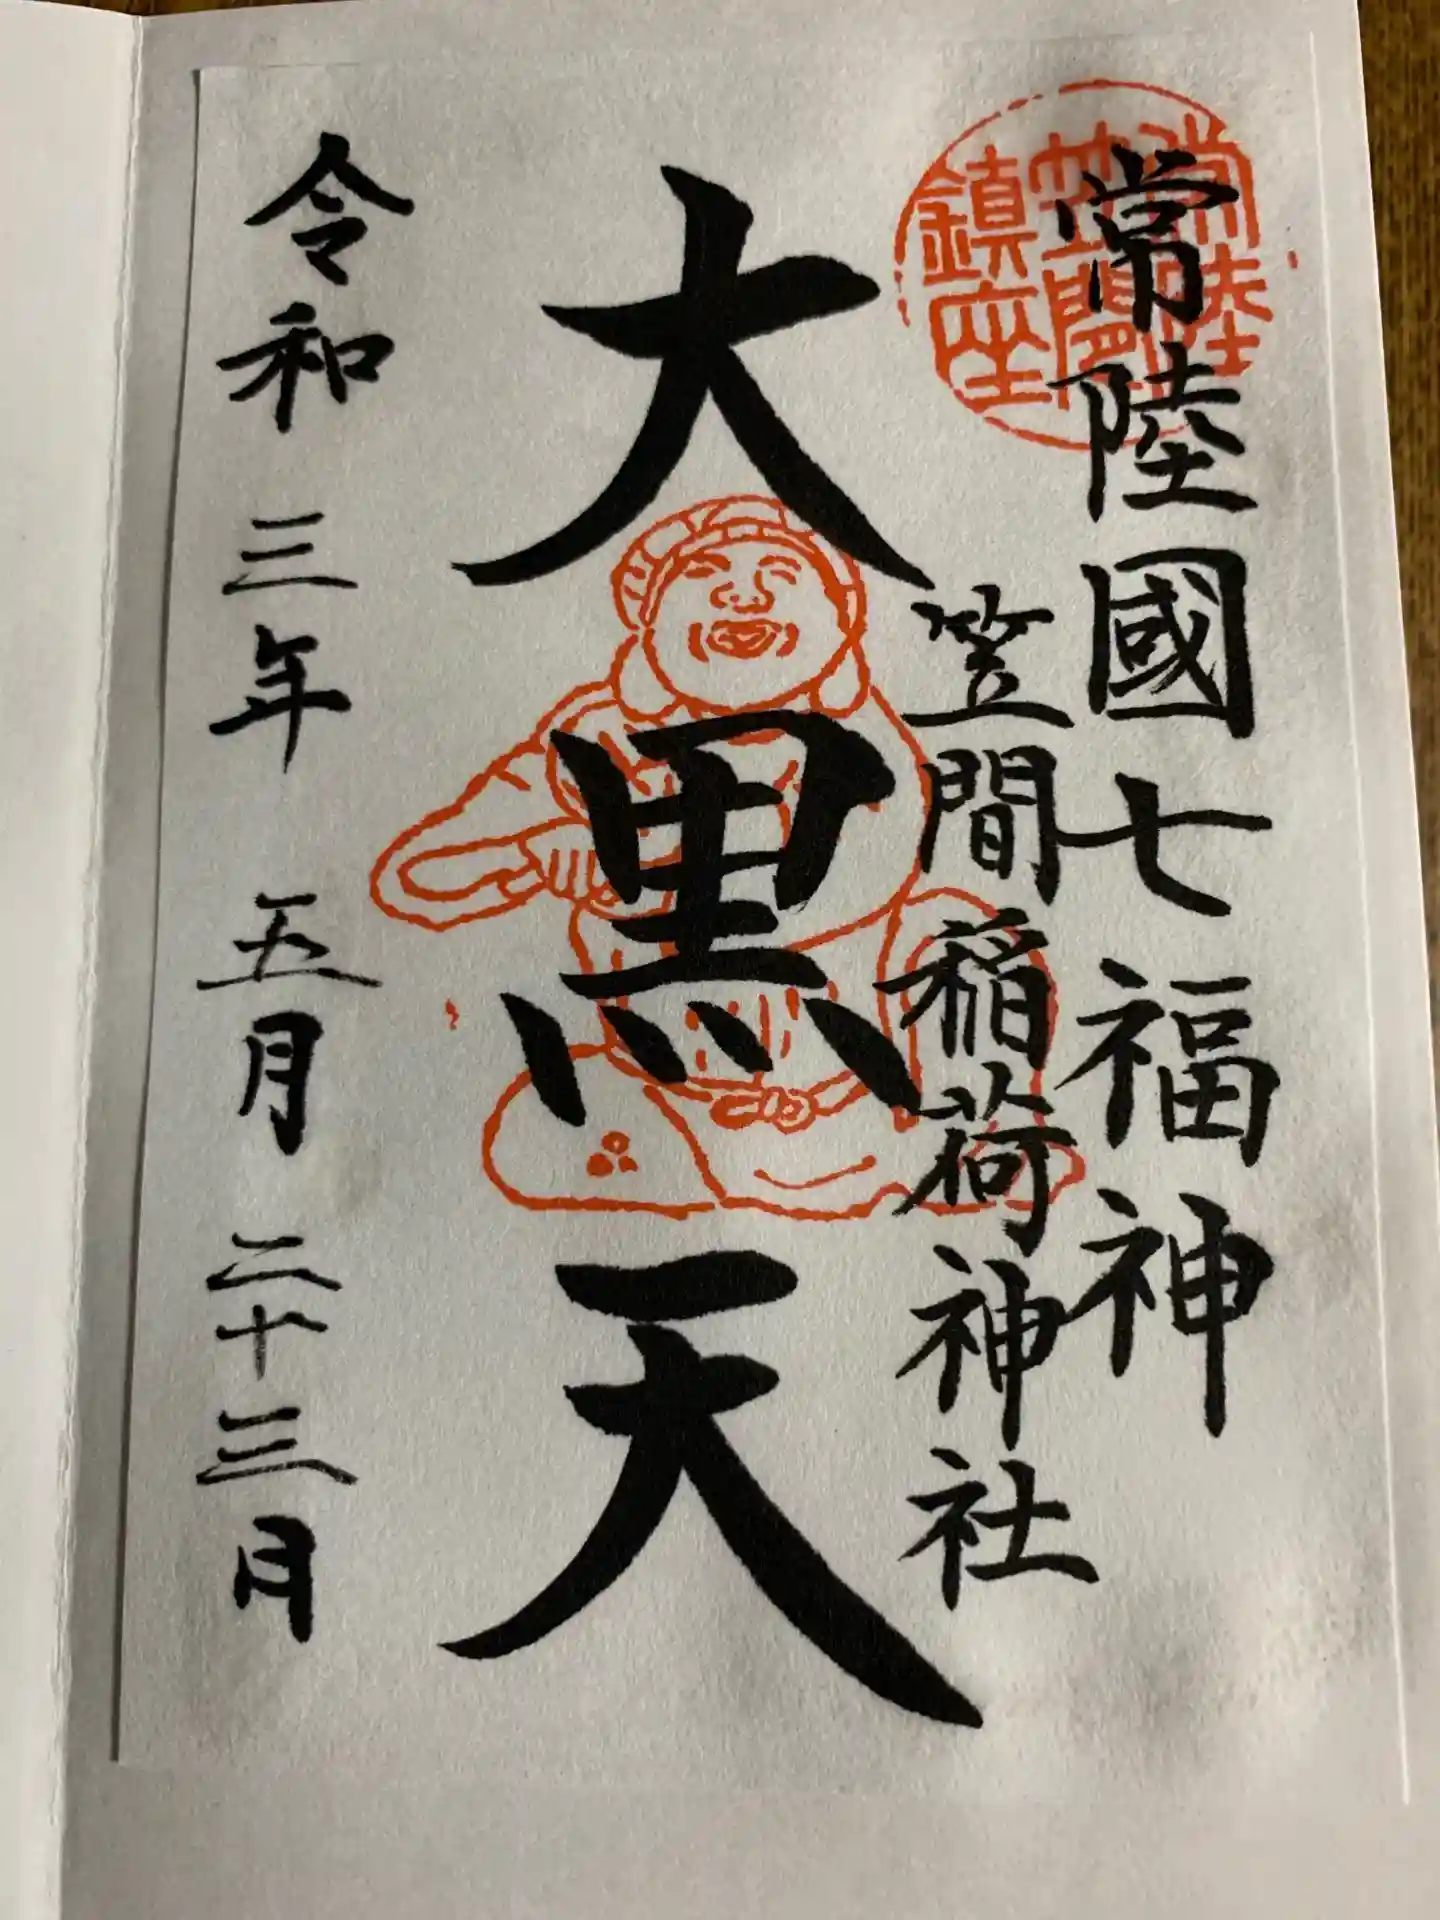 常陸國七福神
笠間稲荷神社
常陸
笠間
鎮座
大黒天
令和三年五月二十三日